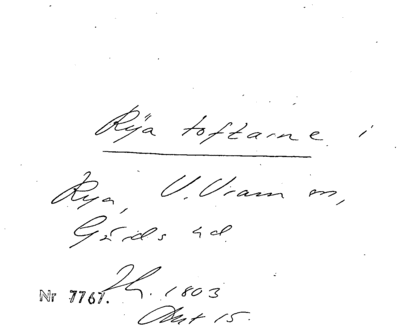 Rya toftarne i
Rya, V. Vram sn,
Gärds hd.
Nr 7767. Jh. 1803
Akt 15.